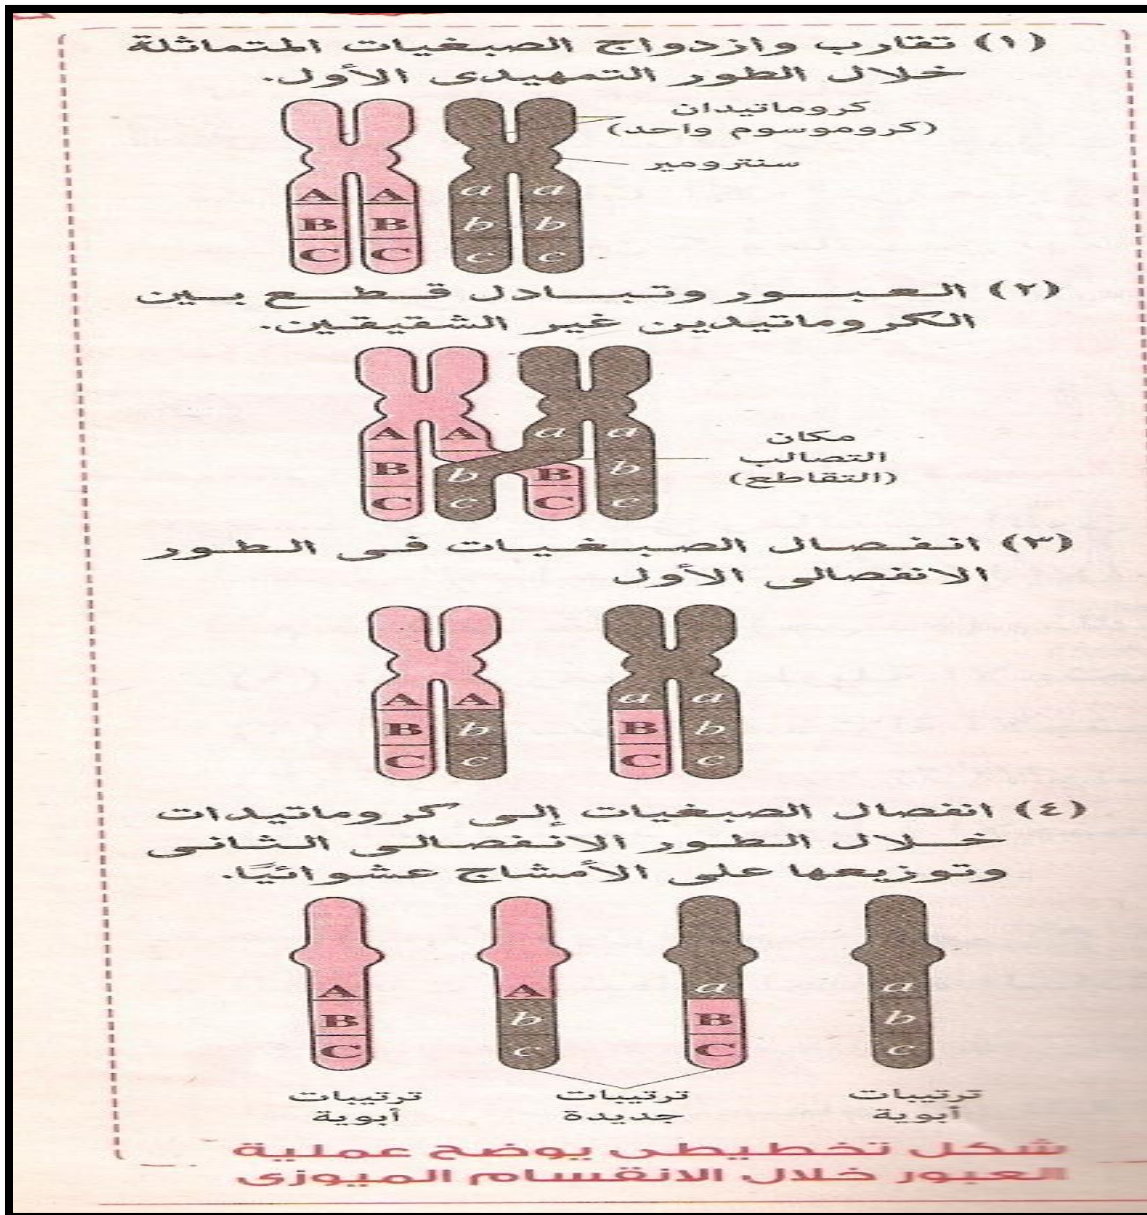 (١) تقارب وازدواج الصبغيات المتماثلة
خلال الطور التمهيدى الأول.
كروماتيدان
(كروموسوم واحد)
سنترومير
A A a a
B B b b
C C c c
(٢) العبور وتبادل قطع بين
الكروماتيدين غير الشقيقين.
A A a a
B b B b
C c C c
مكان
التصالب
(التقاطع)
(٣) انفصال الصبغيات فى الطور
الانفصالى الأول
A A a a
B b B b
C c C c
(٤) انفصال الصبغيات إلى كروماتيدات
خلال الطور الانفصالى الثانى
وتوزيعها على الأمشاج عشوائيًا.
A A a a
B b B b
C c C c
ترتيبات أبوية
ترتيبات جديدة
ترتيبات أبوية
شكل تخطيطى يوضح عملية
العبور خلال الانقسام الميوزى